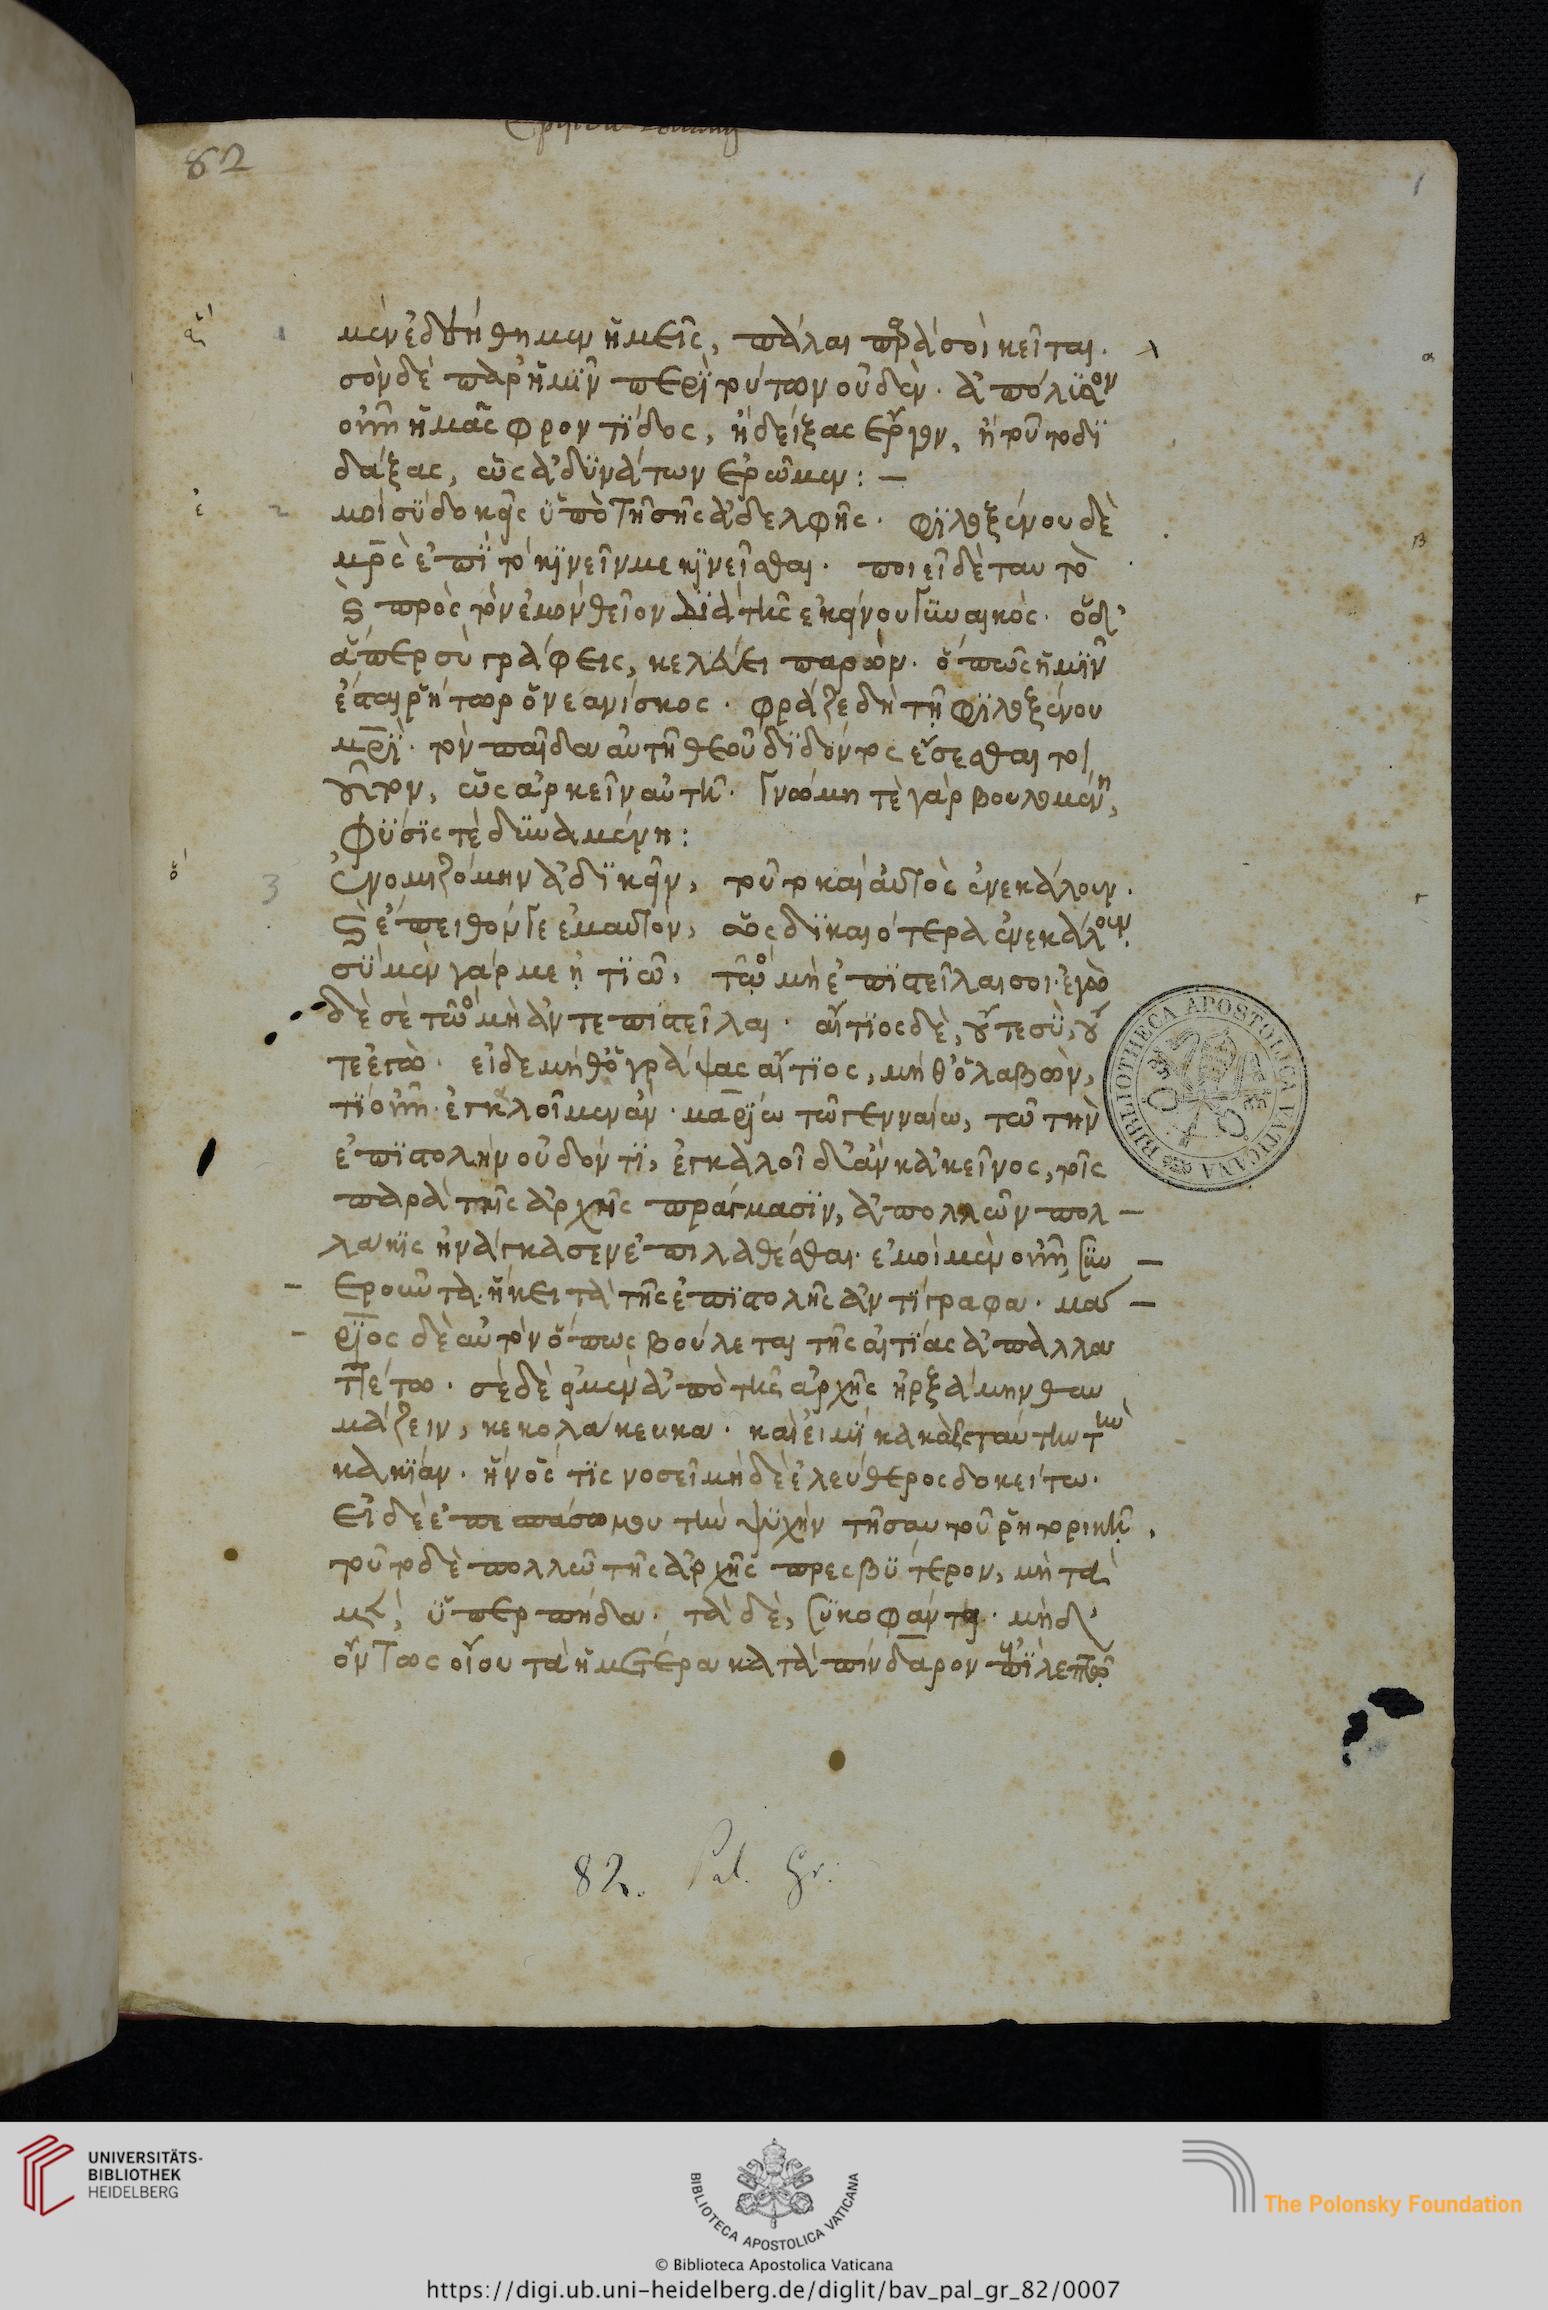 82
1
μὲν ἐδυνήθημεν ἡμεῖς, πάλαι παρά σοι κεῖται.
σὸν δὲ παρ' ἡμῖν περὶ τούτων οὐδέν. ἀπόλυσον
οὖν ἡμᾶς φροντίδος, ἢ δείξας ἔργον, ἢ τοῦτο δι
δάξας, ὡς ἀδυνάτων ἐρῶμεν: —
μοι σὺ δοκεῖς ὑπὸ τῆς σῆς ἀδελφῆς. φιλοξένου δὲ
μρὸς ἐπὶ τὸ κινεῖν με κινεῖσθαι. ποιεῖ δὲ ταυτὸ
καὶ πρὸς τὸν ἐμὸν θεῖον διὰ τῆς ἐκείνου γυναικός. ὁ δ'
ἅπερ σὺ γράφεις, κελεύει παρών. ὅπως ἡμῖν
ἔσται ῥήτωρ ὁ νεανίσκος. φράζε δὴ τῇ φιλοξένου
μρὶ. τὸν παῖδα αὐτῇ θεοῦ διδόντος ἔσεσθαι τοι
οῦτον, ὡς ἀρκεῖν αὐτῇ. γνώμη τὲ γὰρ βουλομένη,
φύσις τὲ δυναμένη:
3 ἐνομιζόμην ἀδικεῖν, τοῦτο καὶ αὐτὸς ἐνεκάλουν.
καὶ ἔπειθόν γε ἐμαυτόν, ὡς δικαιότερα ἐνεκάλουν.
σὺ μὲν γάρ με ᾐτιῶ, τῷ μὴ ἐπιστεῖλαί σοι. ἐγὼ
δὲ σὲ τῷ μὴ ἀντεπιστεῖλαι. αἴτιος δὲ, οὔτε σὺ, οὔ
τε ἐγώ. εἰ δὲ μήθ' ὁ γράψας αἴτιος, μήθ' ὁ λαβών,
τί οὖν ἐγκαλοῖμεν ἄν. μαρίῳ τῷ γενναίῳ, τῷ τὴν
ἐπιστολὴν οὐ δόντι, ἐγκαλοῖ δ' ἂν κἀκεῖνος, τοῖς
παρὰ τῆς ἀρχῆς πράγμασιν, ἃ πολλῶν πολ —
λάκις ἠνάγκασεν ἐπιλαθέσθαι. ἐμοὶ μὲν οὖν συν —
— εροῦντα ἥκει τὰ τῆς ἐπιστολῆς ἀντίγραφα. μα —
— ριος δὲ αὑτὸν ὅπως βούλεται τῆς αἰτίας ἀπαλλα
ττέτω. σὲ δὲ εἰ μὲν ἀφ' οὗ τῆς ἀρχῆς ἠρξάμην θαυ
μάζειν, κεκολάκευκα. καὶ εἰμὶ κακὸς ταύτην τὴν
κακίαν. ἣν ὅς τις νοσεῖ μηδὲ ἐλεύθερος δοκείτω.
εἰ δὲ ἐπεπάσω μου τὴν ψυχὴν τῇ σαυτοῦ ῥητορικῇ,
τοῦτο δὲ πολλῷ τῆς ἀρχῆς πρεσβύτερον, μὴ τὰ
μὲν, ὑπερπήδα. τὰ δὲ, συκοφάντει. μὴδ'
ὄντως οἴου τὰ ἡμέτερα κατὰ πίνδαρον
82. Pal. gr.
BIBLIOTHECA APOSTOLICA VATICANA
UNIVERSITÄTS-
BIBLIOTHEK
HEIDELBERG
BIBLIOTECA APOSTOLICA VATICANA
The Polonsky Foundation
© Biblioteca Apostolica Vaticana
https://digi.ub.uni-heidelberg.de/diglit/bav_pal_gr_82/0007